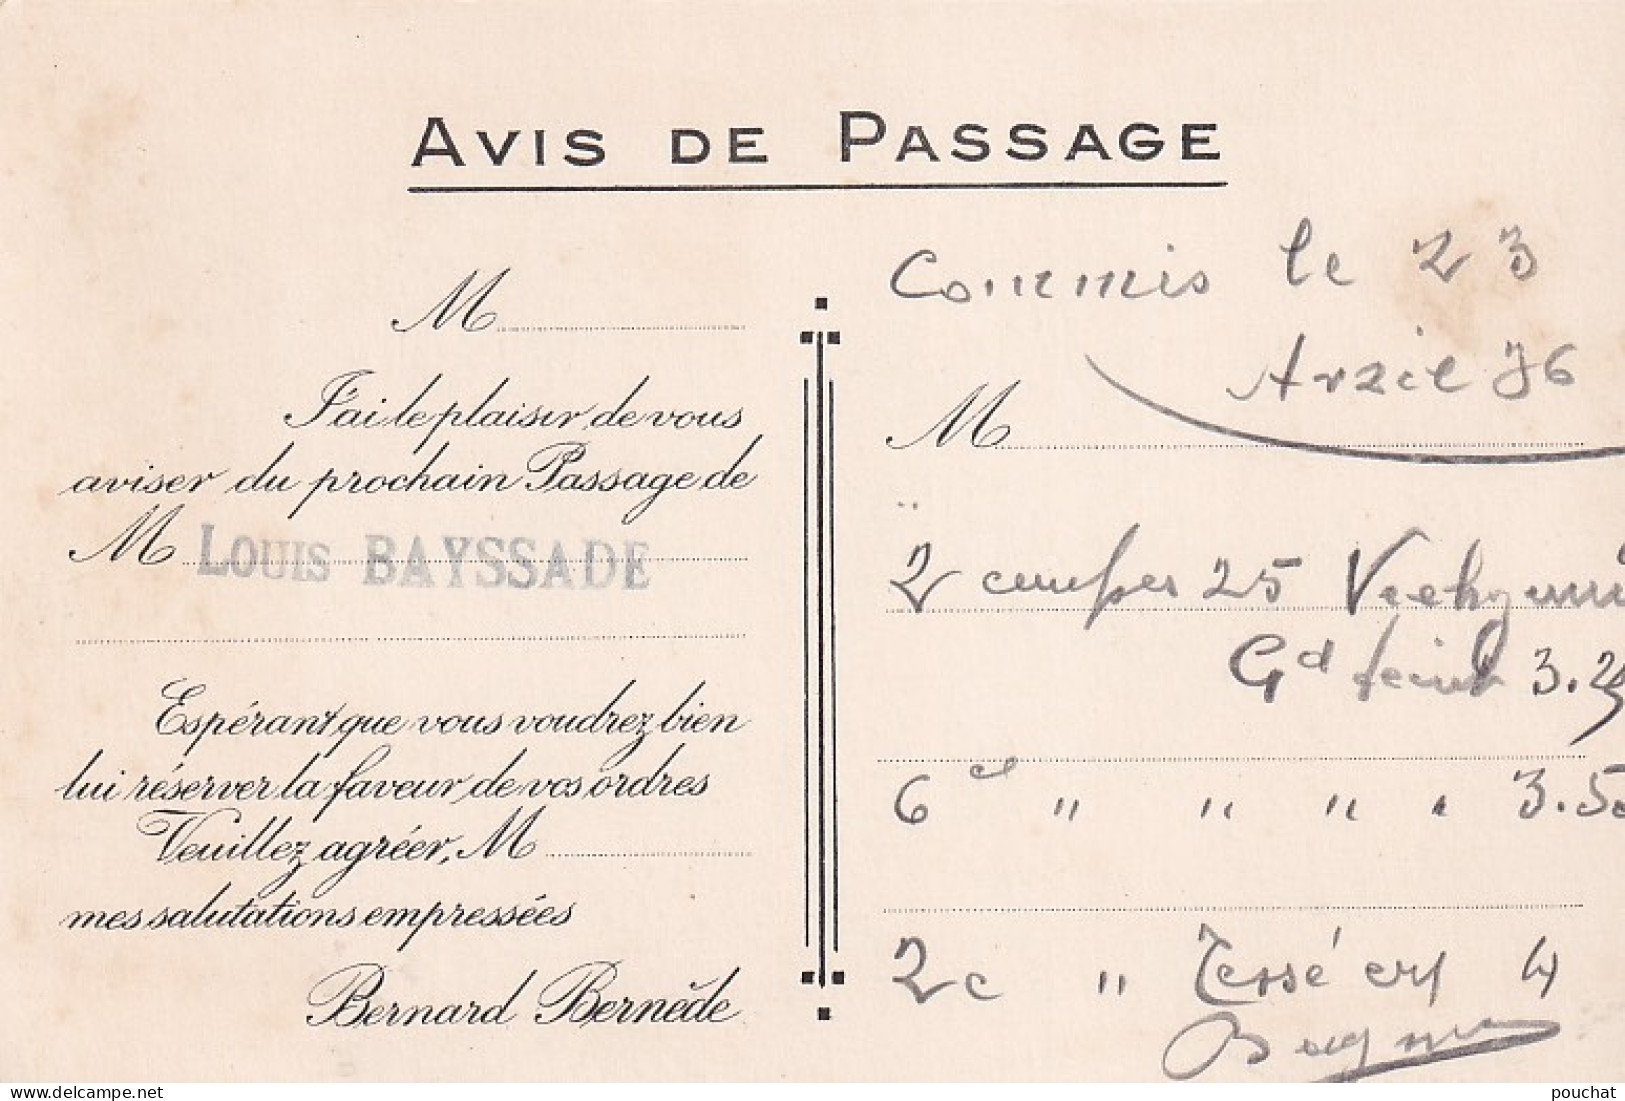 AVIS DE PASSAGE
M
J'ai le plaisir de vous
aviser du prochain Passage de
M LOUIS BAYSSADE
Espérant que vous voudrez bien
lui réserver la faveur de vos ordres
Veuillez agréer, M
mes salutations empressées
Bernard Bernède
Commis le 23
Avril 36
M
2 25
Gd 3.25
6 " " " " 3.50
2 c "
pouchat